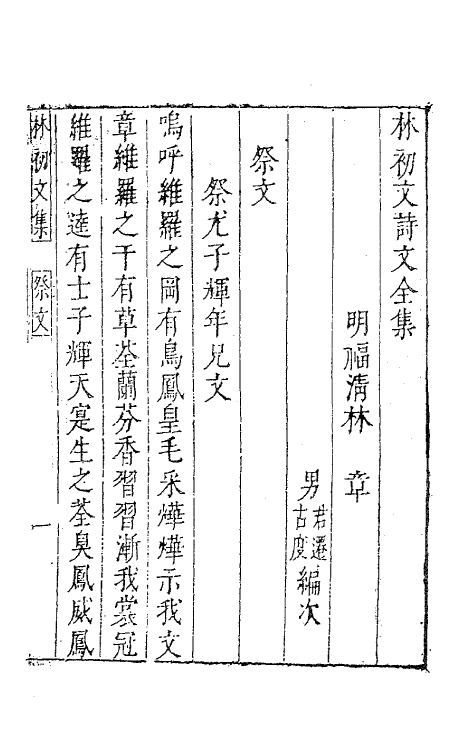 林初文詩文全集
明福清林　章
男君遷古度編次
祭文
祭尤子輝年兄文
嗚呼維羅之岡有鳥鳳皇毛采燁燁示我文
章維羅之干有草荃蘭芬香習習漸我裳冠
維羅之逵有士子輝天寔生之荃臭鳳威鳳
林初文集
祭文
一